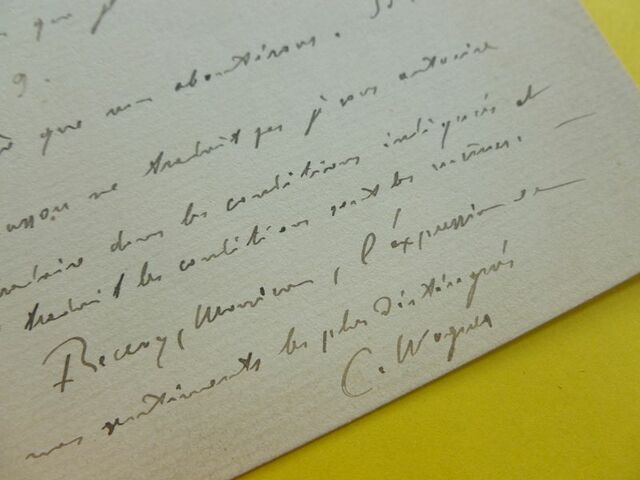 que j
9.
que nous aboutirons. Si
ne traduit pas j'vous autorise
dans les conditions indiquées et
traduit les conditions sont les mêmes. —
Recevez, Monsieur, l'expression de
mes sentiments les plus distingués
C. Wagner